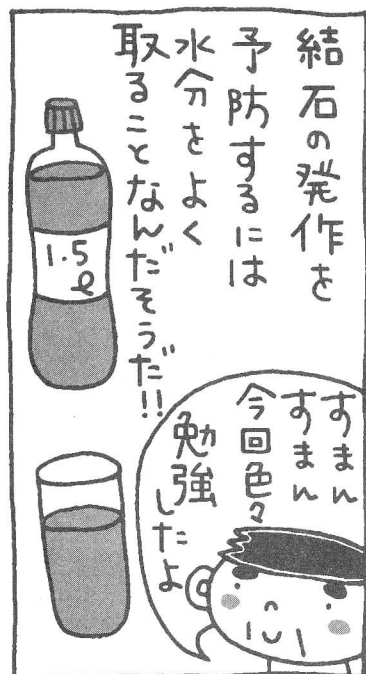 結石の発作を
予防するには
水分をよく
取ることなんだそうだ!!
1.5
ℓ
すまん
すまん
今回色々
勉強したよ